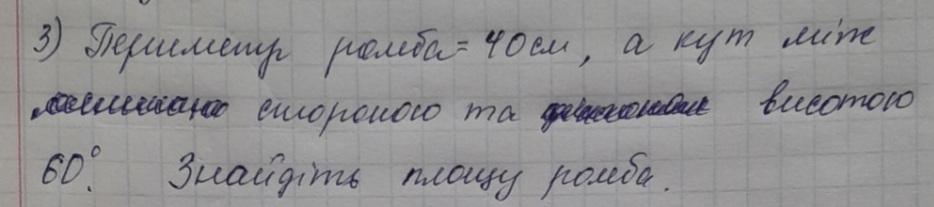 3) Периметр ромба = 40 см, а кут між
стороною та висотою
60°. Знайдіть площу ромба.